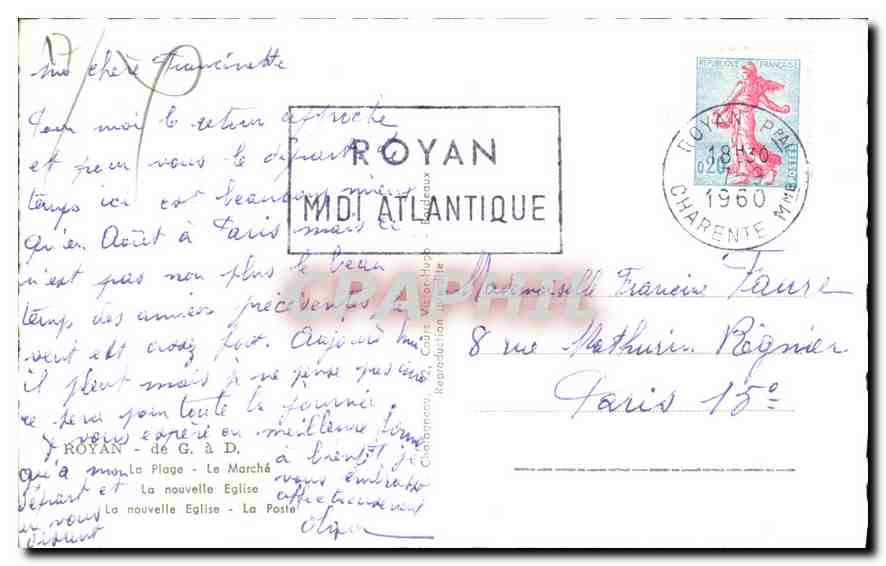 Ma chère Francinette
Pour moi le retour approche
et pour vous le départ. Le
temps ici est beaucoup mieux
qu'en Août à Paris mais ce
n'est pas non plus le beau
temps des années précédentes, le
vent est assez fort. Aujourd'hui
il pleut mais je ne pense pas que
ce sera pour toute la journée.
Je vous espère en meilleure forme
qu'à mon
départ et
vous
disant
à bientôt je
vous embrasse
affectueusement
ROYAN - de G. à D.
La Plage - Le Marché
La nouvelle Eglise
La nouvelle Eglise - La Poste
Cours Victor-Hugo - Bordeaux
Reproduction interdite
ROYAN
MIDI ATLANTIQUE
REPUBLIQUE FRANÇAISE
0,20
POSTES
ROYAN Ppal
18H30
1960
CHARENTE MME
Mademoiselle Francine Faure
8 rue Mathurin Régnier
Paris 15e
CPARHIL